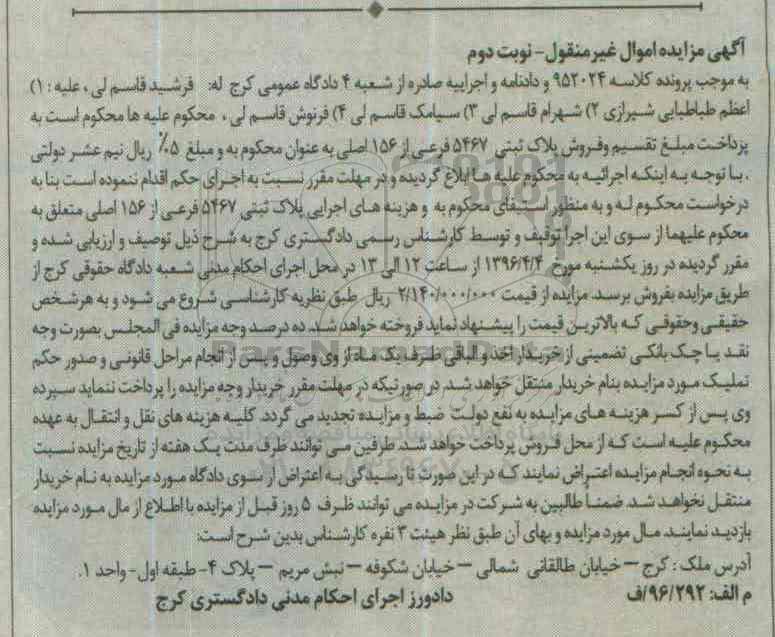 آگهی مزایده اموال غیر منقول - نوبت دوم
به موجب پرونده کلاسه ۹۵۲۰۲۴ و دادنامه و اجراییه صادره از شعبه ۴ دادگاه عمومی کرج له: فرشید قاسم لی ، علیه : ۱)
اعظم طباطبایی شیرازی ۲) شهرام قاسم لی ۳) سیامک قاسم لی ۴) فرنوش قاسم لی ، محکوم علیه ها محکوم است به
پرداخت مبلغ تقسیم وفروش پلاک ثبتی ۵۴۶۷ فرعی از ۱۵۶ اصلی به عنوان محکوم به و مبلغ ۵٪ ریال نیم عشر دولتی
. با توجه به اینکه اجرائیه به محکوم علیه ها ابلاغ گردیده و در مهلت مقرر نسبت به اجرای حکم اقدام ننموده است بنا به
درخواست محکوم له و به منظور استیفای محکوم به و هزینه های اجرایی پلاک ثبتی ۵۴۶۷ فرعی از ۱۵۶ اصلی متعلق به
محکوم علیهما از سوی این اجرا توقیف و توسط کارشناس رسمی دادگستری کرج به شرح ذیل توصیف و ارزیابی شده و
مقرر گردیده در روز یکشنبه مورخ ۱۳۹۶/۴/۴ از ساعت ۱۲ الی ۱۳ در محل اجرای احکام مدنی شعبه دادگاه حقوقی کرج از
طریق مزایده بفروش برسد. مزایده از قیمت ۲/۱۴۰/۰۰۰/۰۰۰ ریال طبق نظریه کارشناسی شروع می شود و به هرشخص
حقیقی وحقوقی که بالاترین قیمت را پیشنهاد نماید فروخته خواهد شد. ده درصد وجه مزایده فی المجلس بصورت وجه
نقد یا چک بانکی تضمینی از خریدار اخذ و الباقی ظرف یک ماه از وی وصول و پس از انجام مراحل قانونی و صدور حکم
تملیک مورد مزایده بنام خریدار منتقل خواهد شد. در صورتیکه در مهلت مقرر خریدار وجه مزایده را پرداخت ننماید سپرده
وی پس از کسر هزینه های مزایده به نفع دولت ضبط و مزایده تجدید می گردد. کلیه هزینه های نقل و انتقال به عهده
محکوم علیه است که از محل فروش پرداخت خواهد شد. طرفین می توانند ظرف مدت یک هفته از تاریخ مزایده نسبت
به نحوه انجام مزایده اعتراض نمایند که در این صورت تا رسیدگی به اعتراض از سوی دادگاه مورد مزایده به نام خریدار
منتقل نخواهد شد. ضمناً طالبین به شرکت در مزایده می توانند ظرف ۵ روز قبل از مزایده با اطلاع از مال مورد مزایده
بازدید نمایند. مال مورد مزایده و بهای آن طبق نظر هیئت ۳ نفره کارشناس بدین شرح است:
آدرس ملک : کرج – خیابان طالقانی شمالی – خیابان شکوفه – نبش مریم – پلاک ۴- طبقه اول- واحد ۱.
م الف: ۹۶/۲۹۲/ف دادورز اجرای احکام مدنی دادگستری کرج
ParsNamadData